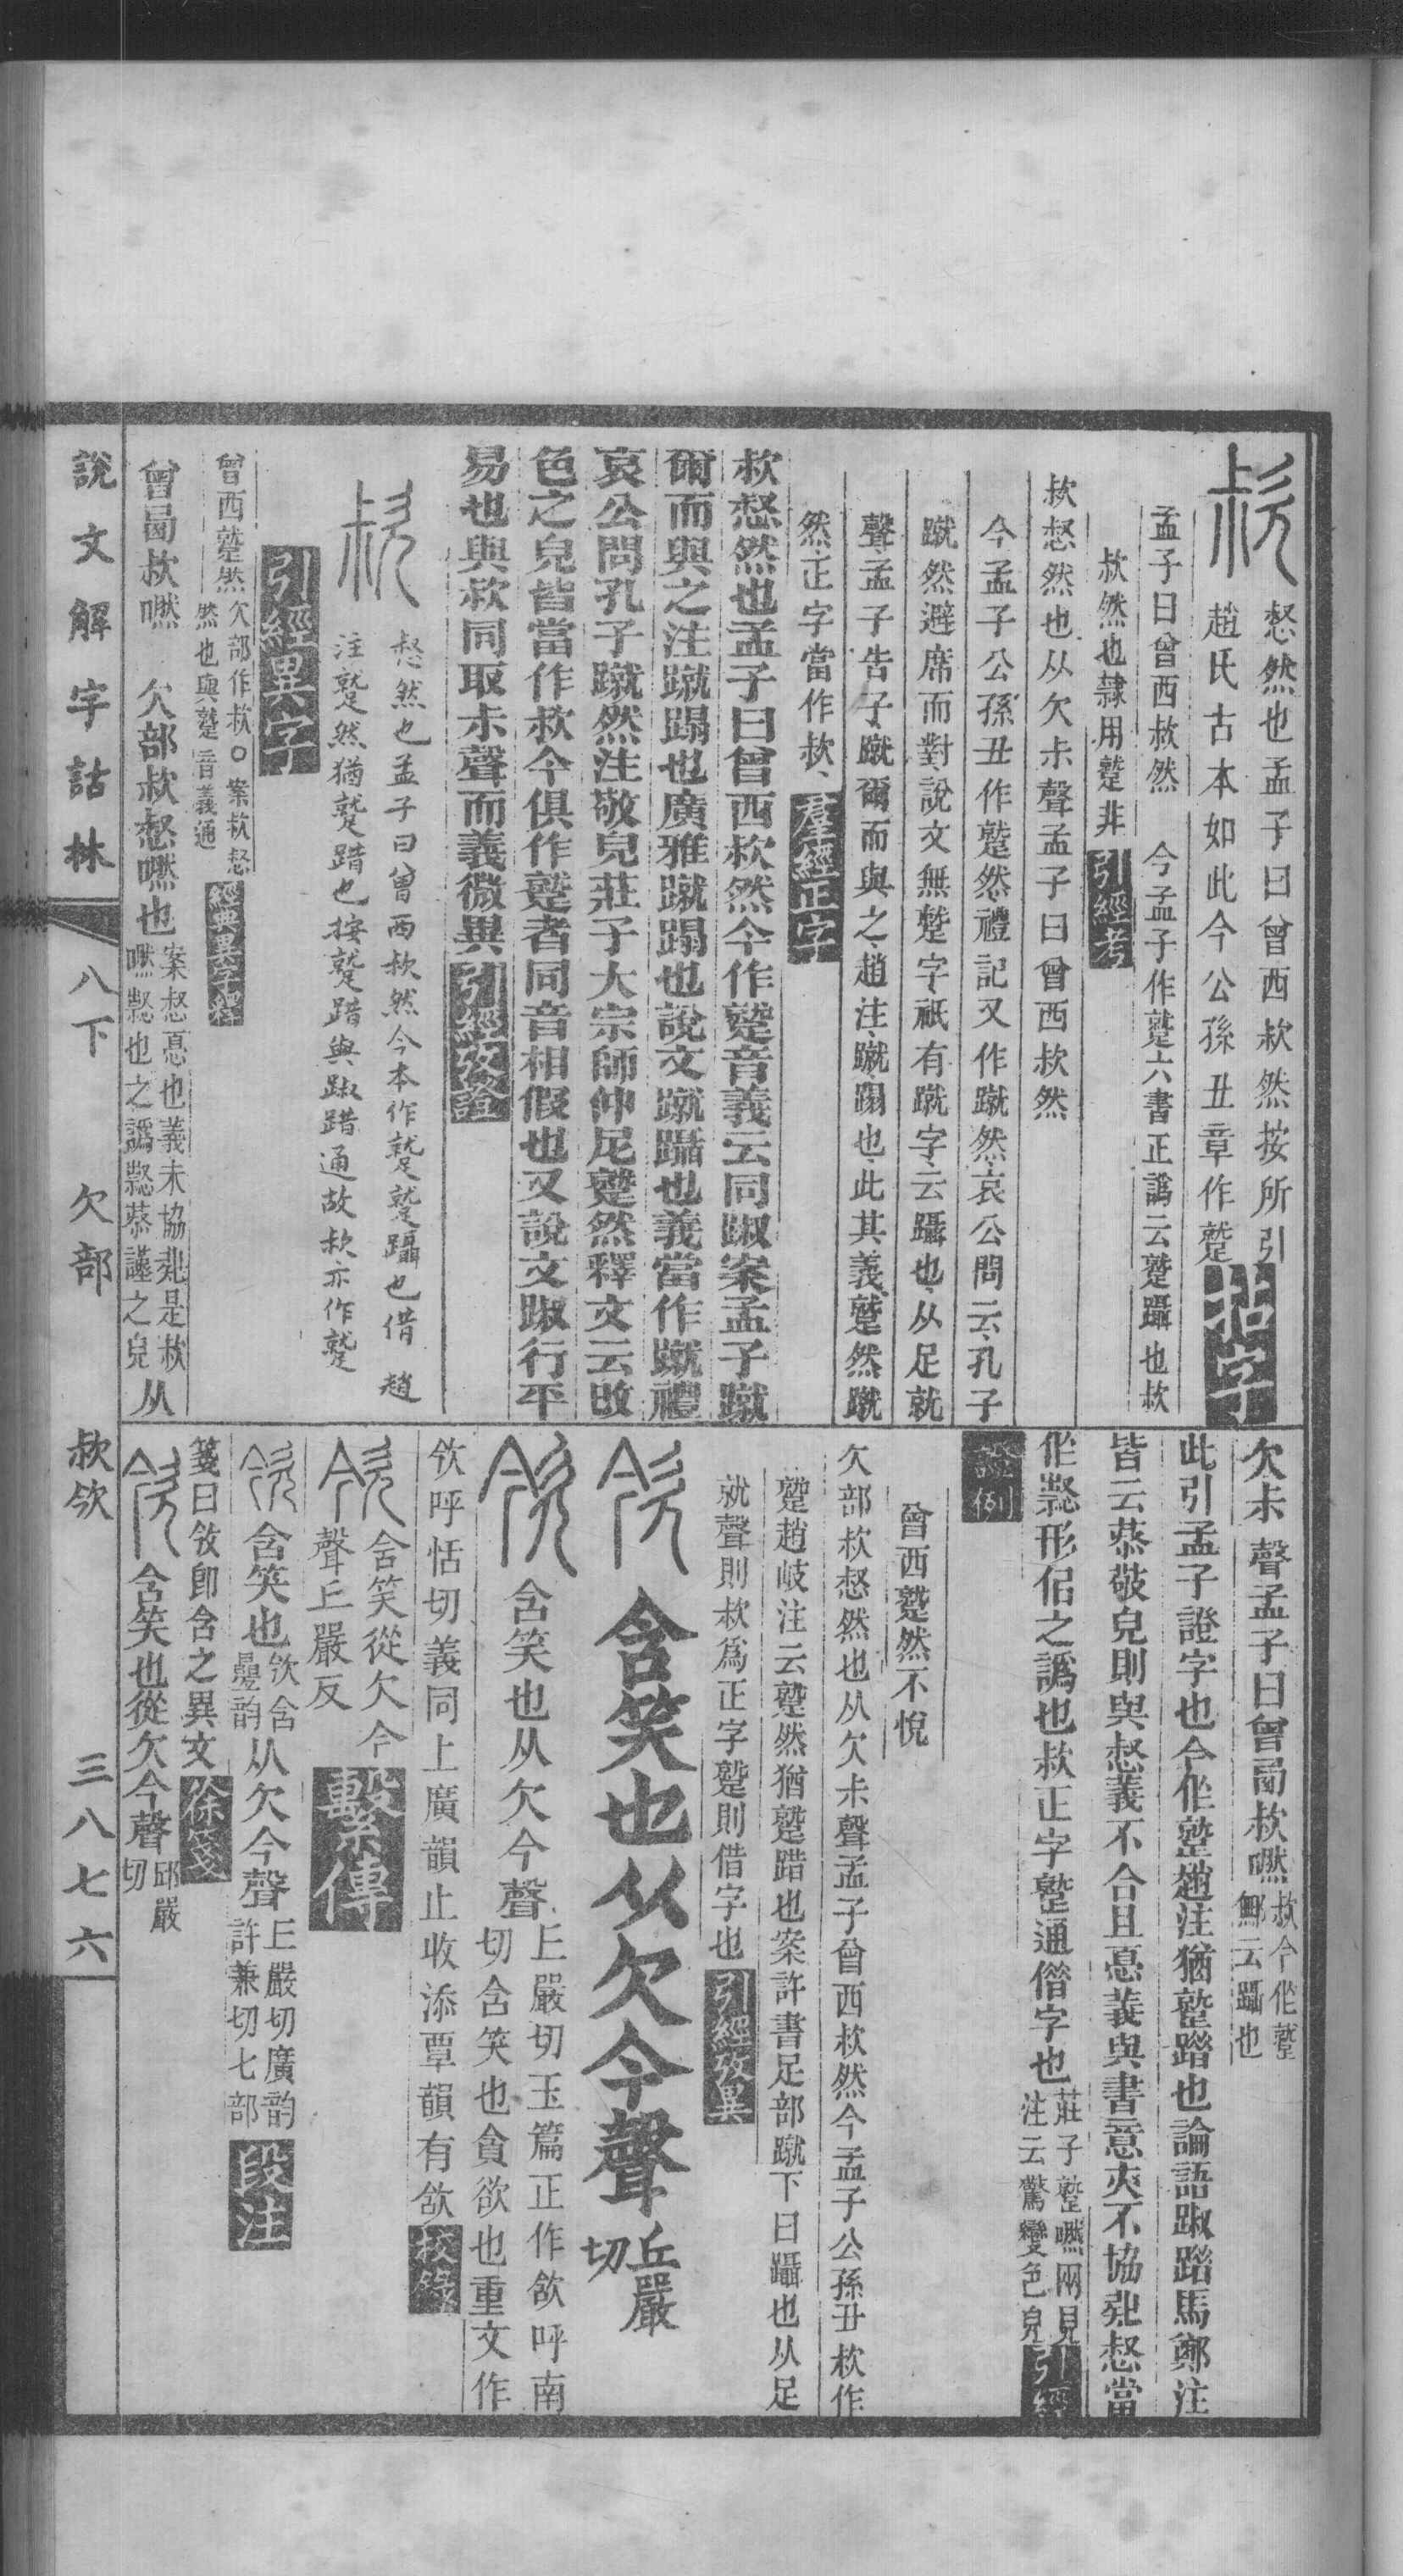 惄然也孟子曰曾西欶然按所引
趙氏古本如此今公孫丑章作蹵
拈字
孟子曰曾西欶然
今孟子作蹵六書正譌云蹵躡也欶
欶然也隸用蹵非
引經考
欶惄然也从欠尗聲孟子曰曾西欶然
今孟子公孫丑作蹵然禮記又作蹴然哀公問云孔子
蹴然避席而對說文無蹵字祇有蹴字云躡也从足就
聲孟子告子蹴爾而與之趙注蹴蹋也此其義蹵然蹴
然正字當作欶
羣經正字
欶惄然也孟子曰曾西欶然今作蹵音義云同踧案孟子蹴
爾而與之注蹴蹋也廣雅蹴蹋也說文蹴躡也義當作蹴禮
哀公問孔子蹴然注敬皃莊子大宗師仲尼蹵然釋文云改
色之皃皆當作欶今俱作蹵者同音相假也又說文踧行平
易也與欶同取尗聲而義微異
引經攷證
惄然也孟子曰曾西欶然今本作蹵蹵躡也借 趙
注蹵然猶蹵踖也按蹵踖與踧踖通故欶亦作蹵
引經異字
曾西蹵然
欠部作欶○案欶惄
然也與蹵音義通
經典異字釋
曾𠧟欶嘫 欠部欶惄嘫也
案惄𢝊也義未協
从
欠尗聲孟子曰曾𠧟欶嘫
欶今作蹵
鄦云躡也
此引孟子證字也今作蹵趙注猶蹵踖也論語踧踖馬鄭注
皆云恭敬皃則與惄義不合且𢝊義與書意亦不協
形侣之譌也欶正字蹵通偕字也
莊子蹵嘫兩見
注云驚變色皃
引經
證例
曾西蹵然不悅
欠部欶惄然也从欠尗聲孟子曾西欶然今孟子公孫丑欶作
蹵趙岐注云蹵然猶蹵踖也案許書足部蹴下曰躡也从足
就聲則欶爲正字蹵則借字也
引經攷異
含笑也从欠今聲
丘嚴
切
含笑也从欠今聲
丘嚴切玉篇正作欿呼南
切含笑也貪欲也重文作
欦呼恬切義同上廣韻止收添覃韻有欿
校錄
含笑從欠今
聲丘嚴反
繫傳
含笑也
欦含
曡韵
从欠今聲
丘嚴切廣韵
許兼切七部
段注
箋曰欦卽含之異文
徐箋
含笑也從欠今聲
邱嚴
切
說文解字詁林
八下
欠部
欶欦
三八七六